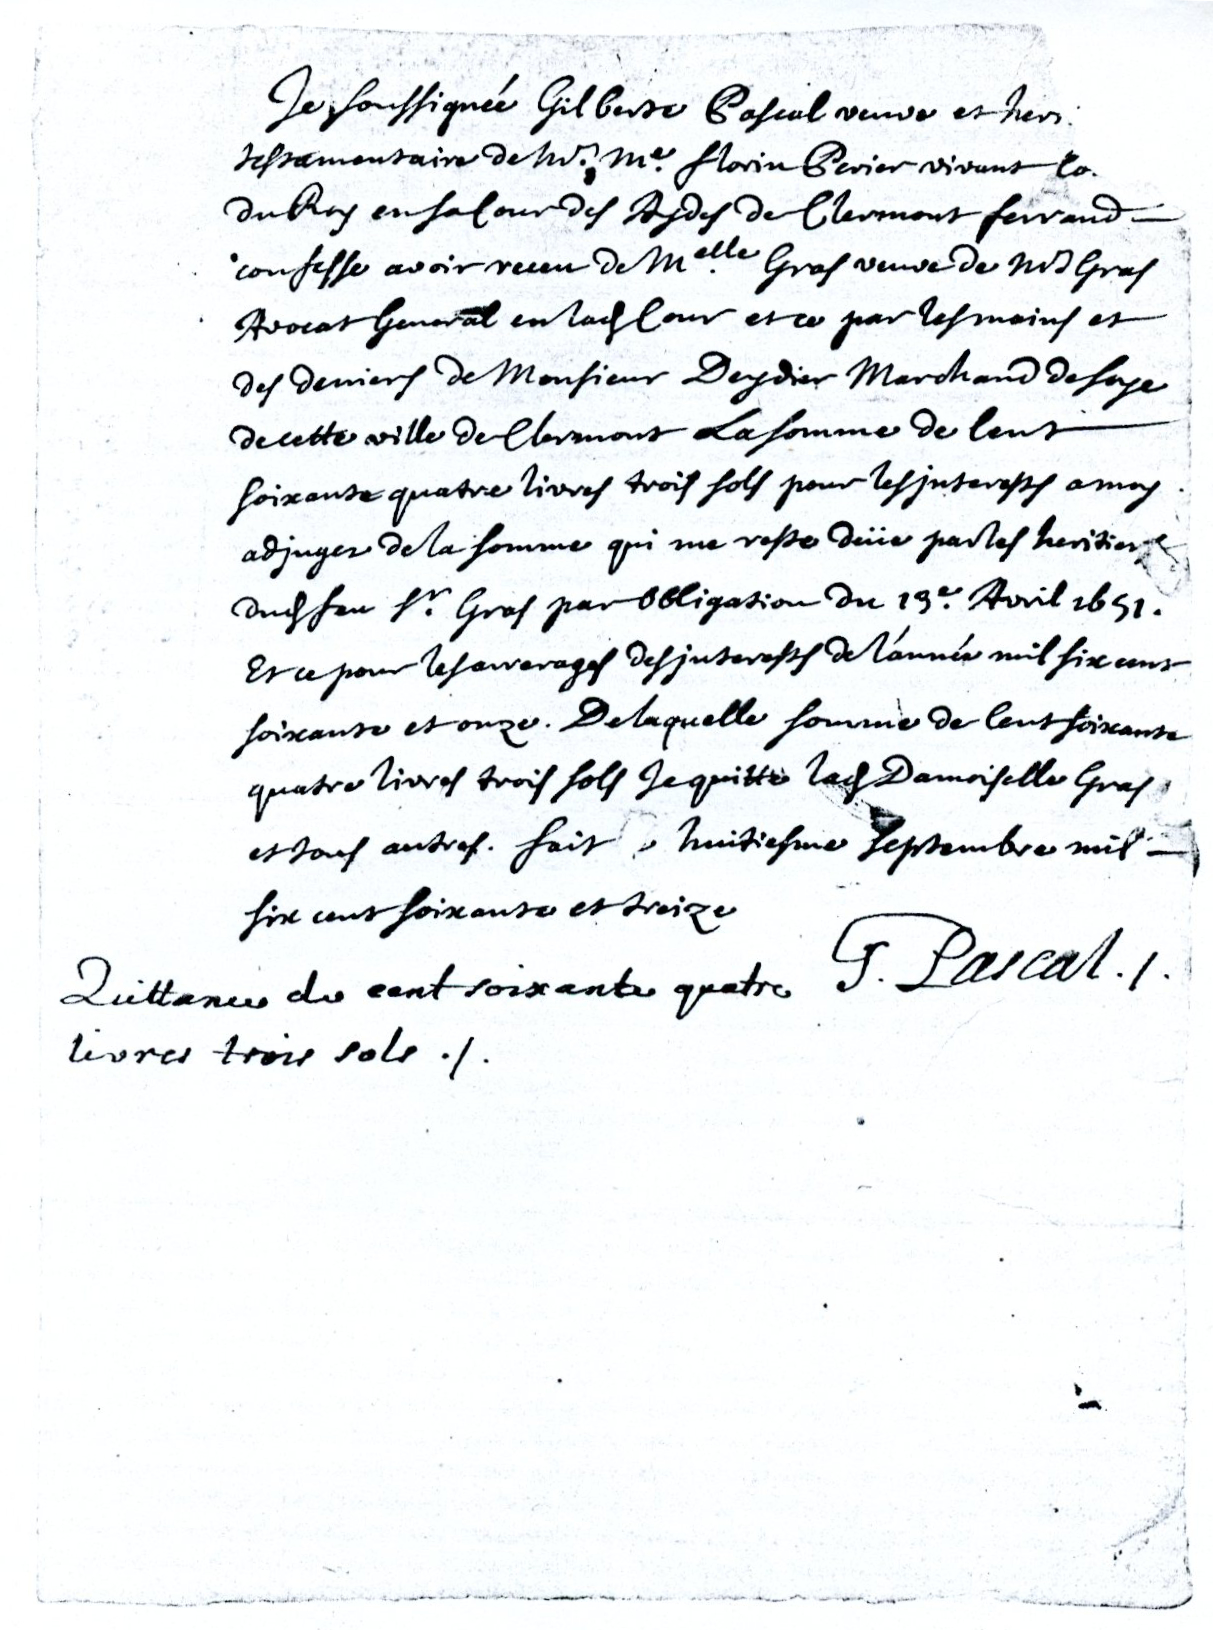 Je soussignée Gilberte Pascal veuve et heri
testamentaire de Mr. Me. florin Perier vivant Co.
du Roy en sa Cour des Aydes de Clermont ferrand
confesse avoir receu de Melle Gras veuve de Mr Gras
Avocat General en lad Cour et ce par les mains et
des deniers de Monsieur Deydier Marchand de soye
de cette ville de Clermont La somme de Cent
soixante quatre livres trois sols pour les jnterests a moy
adjuger de la somme qui me reste deüe par les heritiers
dud feu Sr. Gras par Obligation du 19e. Avril 1651.
Et ce pour les arrerages des jnterests de l'année mil six cent
soixante et onze. De laquelle somme de Cent soixante
quatre livres trois sols Je quitte lad Damoiselle Gras
et tous autres. fait huitiesme septembre mil
six cent soixante et treize
G. Pascal ./.
Quittance de cent soixante quatre
livres trois sols ./.